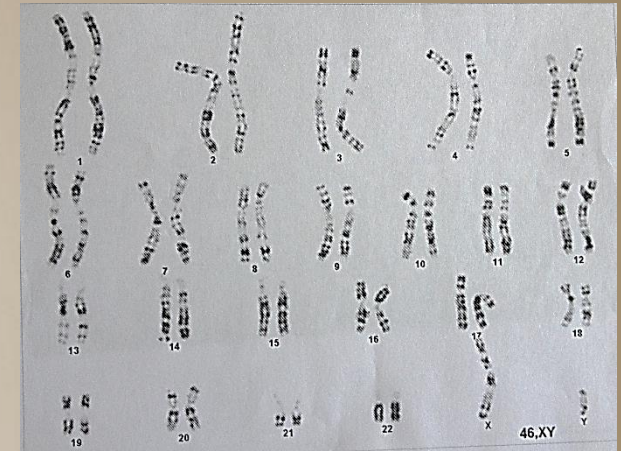 1 2 3 4 5
6 7 8 9 10 11 12
13 14 15 16 17 18
19 20 21 22 X Y
46,XY